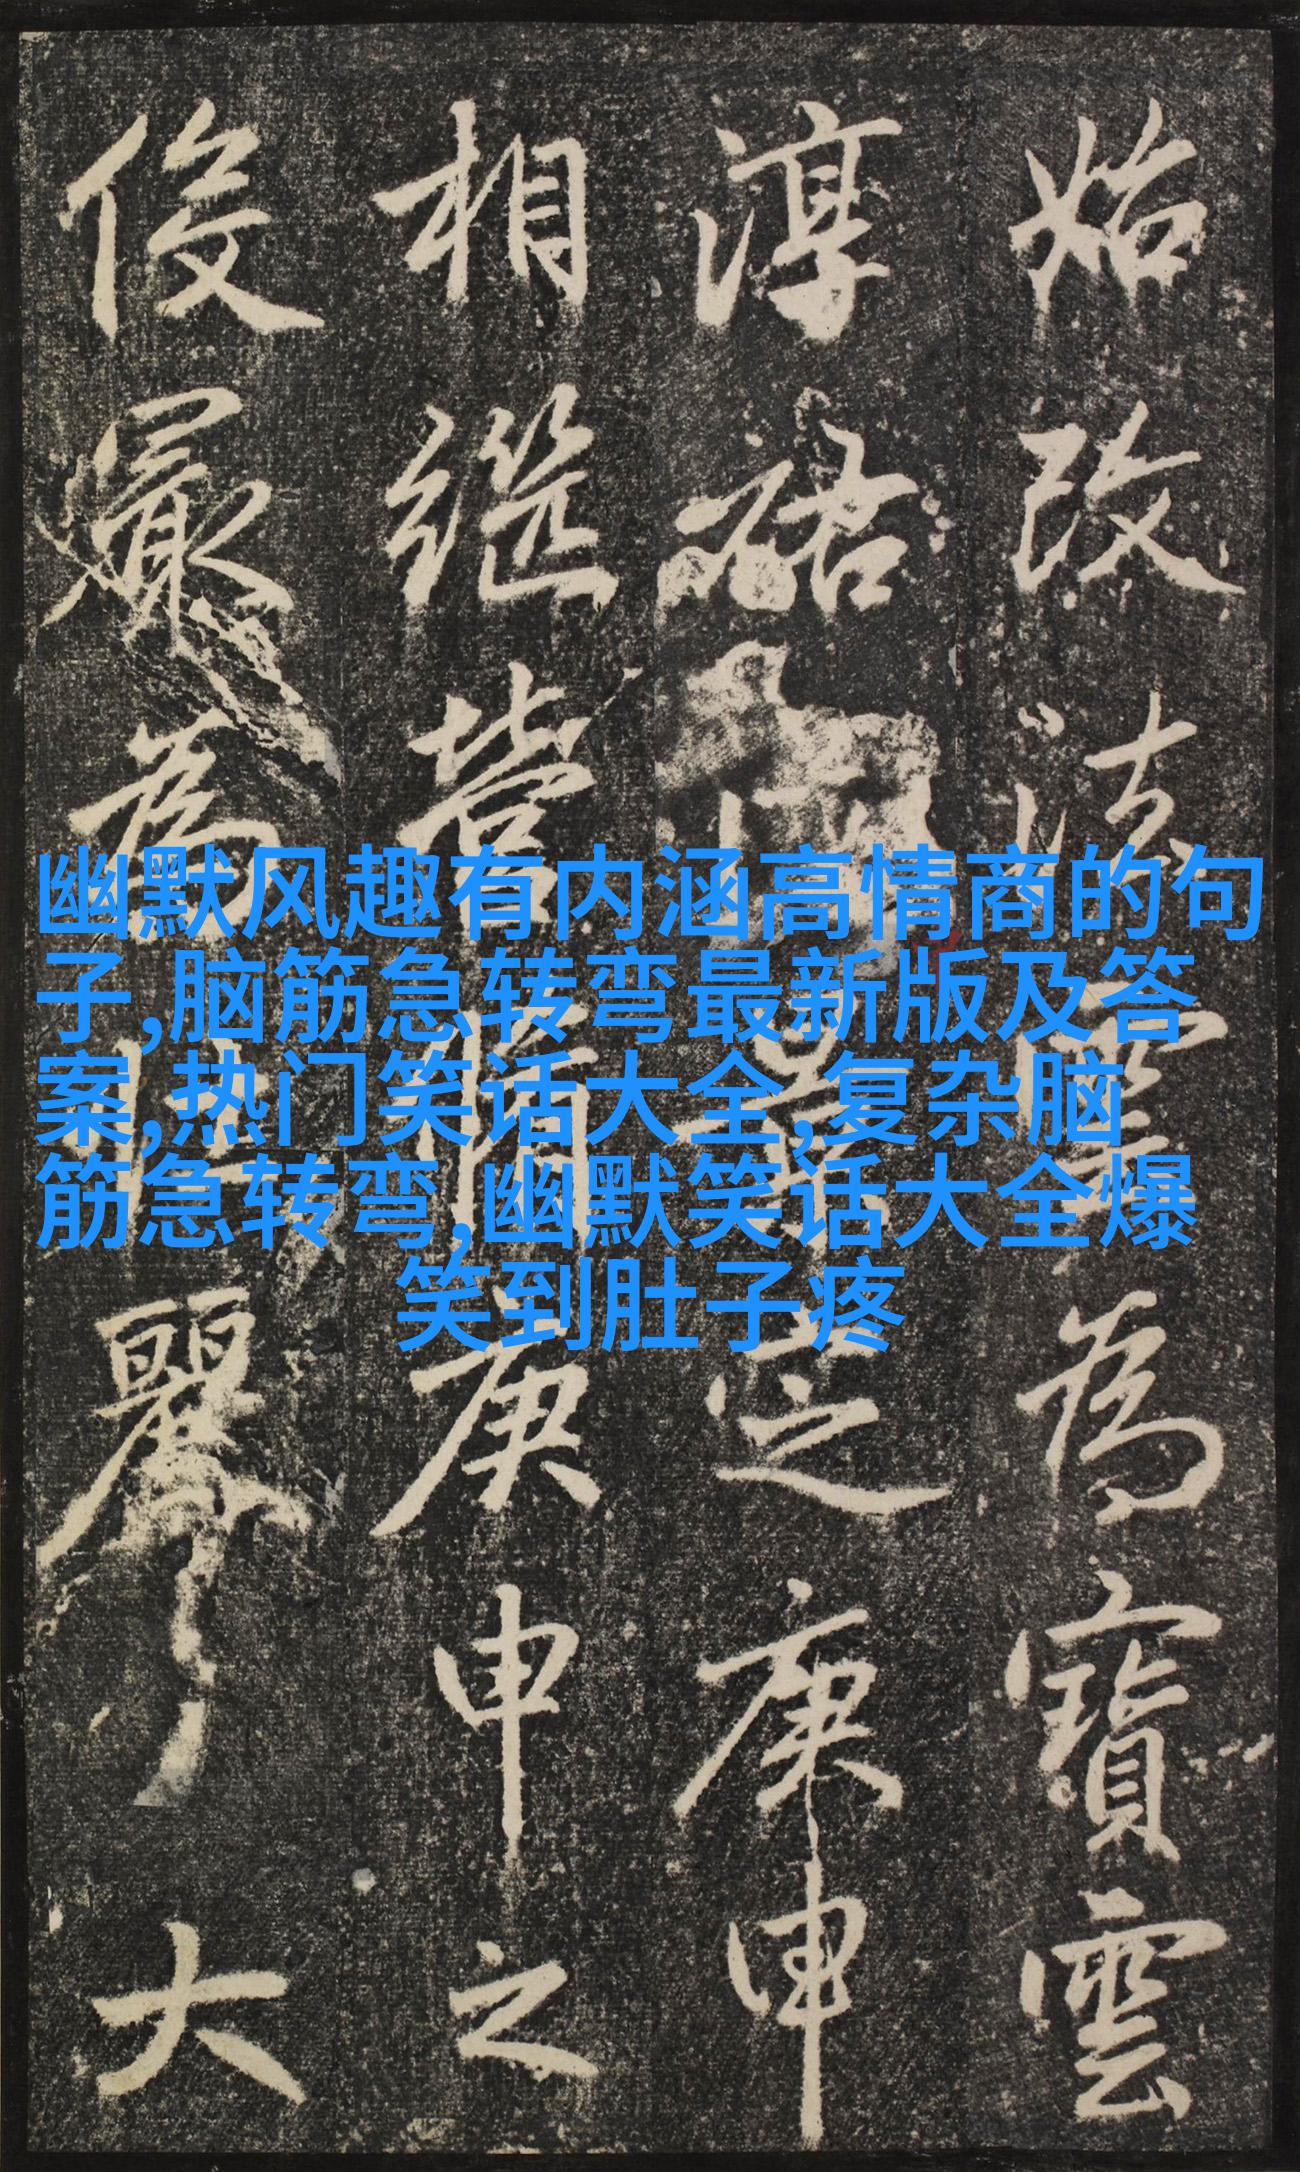 幽默风趣有内涵高情商的句
子,脑筋急转弯最新版及答
案,热门笑话大全,复杂脑
筋急转弯,幽默笑话大全爆
笑到肚子疼
始改法為寶雲
淳祐之庚申
相繼營脩庚申之
後最為壯麗大